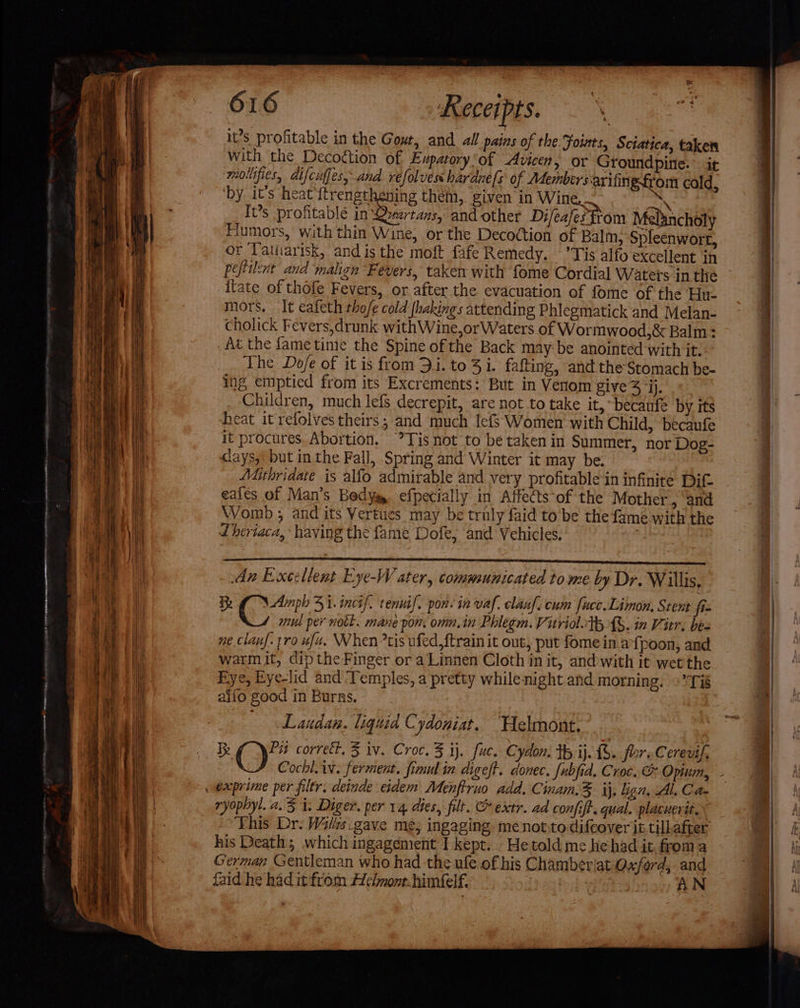 616 Receipts.
it's profitable in the Gout, and all pains of the Joints, Sciatica, taken
with the Decoction of Eupatory of Avicen, or Groundpine. it
mollifies, discusses, and resolves hardness of Members arising from cold,
by it's heat strengthening them, given in Wine.
It's profitable in Quartans, and other Diseases from Melancholy
Humors, with thin Wine, or the Decoction of Balm, Spleenwort,
or Tamarisk, and is the most safe Remedy. 'Tis also excellent in
pestilent and malign Fevers, taken with some Cordial Waters in the
state of those Fevers, or after the evacuation of some of the Hu-
mors. It easeth those cold shakings attending Phlegmatick and Melan-
cholick Fevers, drunk with Wine, or Waters of Wormwood, & Balm:
At the same time the Spine of the Back may be anointed with it.
The Dose of it is from ℈i. to ʒi. fasting, and the Stomach be-
ing emptied from its Excrements: But in Venom give ʒij.
Children, much less decrepit, are not to take it, because by its
heat it resolves theirs; and much less Women with Child, because
it procures Abortion. 'Tis not to be taken in Summer, nor Dog-
days, but in the Fall, Spring and Winter it may be.
Mithridate is also admirable and very profitable in infinite Dis-
eases of Man's Body, especially in Affects of the Mother, and
Womb; and its Vertues may be truly said to be the same with the
Theriaca, having the same Dose, and Vehicles.
An Excellent Eye-Water, communicated to me by Dr. Willis.
℞ C Amph ʒi. incis. tenuis. pon. in vas. claus. cum succ. Limon. Stent si-
mul per noct. mane pon. omn. in Phlegm. Vitriol. ℔ ſS. in Vitr. be-
ne claus. pro usu. When 'tis used, strain it out, put some in a spoon, and
warm it, dip the Finger or a Linnen Cloth in it, and with it wet the
Eye, Eye-lid and Temples, a pretty while night and morning. 'Tis
also good in Burns.
Laudan. liquid Cydoniat. Helmont.
℞ OPii correct. ℥ iv. Croc. ℥ ij. suc. Cydon. ℔ ij. ſS. flor. Cerevis.
Cochl. iv. ferment. simul in digest. donec. subsid. Croc. & Opium,
exprime per filtr. deinde eidem Menstruo add. Cinam. ℥ ij. lign. Al. Ca-
ryophyl. a. ℥ i. Diger. per 14 dies, filt. & extr. ad consist. qual. placuerit.
This Dr. Willis gave me, ingaging me not to discover it till after
his Death; which ingagement I kept. He told me he had it from a
German Gentleman who had the use of his Chamber at Oxford, and
said he had it from Helmont himself.
AN